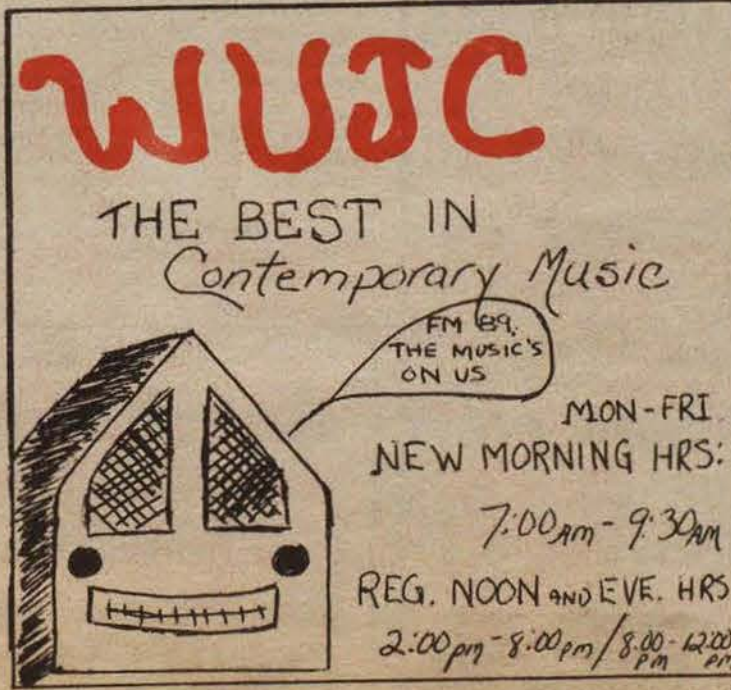 WUJC
THE BEST IN
Contemporary Music
FM 89.
THE MUSIC'S
ON US
MON-FRI
NEW MORNING HRS:
7:00AM - 9:30AM
REG. NOON AND EVE. HRS
2:00pm - 8:00pm / 8:00pm - 12:00pm